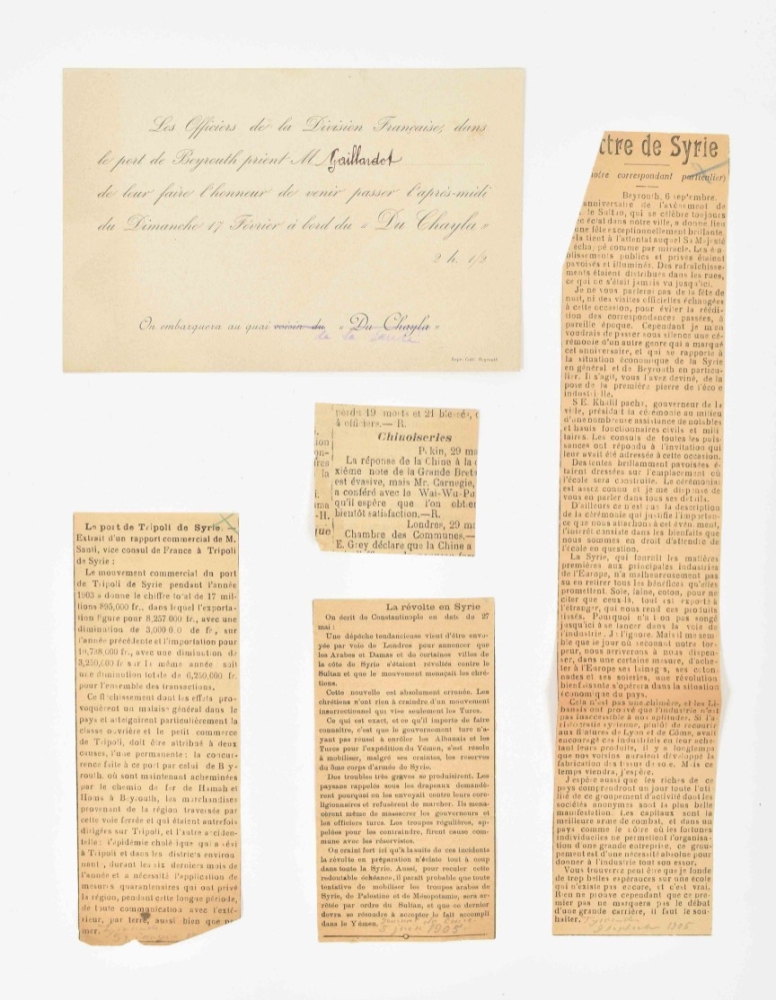 Les Officiers de la Division Française, dans
le port de Beyrouth prient M Gaillardot
de leur faire l'honneur de venir passer l'après-midi
du Dimanche 17 Février à bord du « Du Chayla »
2 h. 1/2
On embarquera au quai voisin du « Du Chayla »
de la
ttre de Syrie
notre correspondant particulier)
Beyrouth, 6 septembre.
anniversaire de l'avènement de
le Sultan, qui se célèbre toujours
éclat dans notre ville, a donné lieu
une fête exceptionnellement brillante,
tient à l'attentat auquel Sa Majesté
échappé comme par miracle. Les
blissements publics et privés étaient
pavoisés et illuminés. Des rafraîchisse-
ments étaient distribués dans les rues,
ce qui ne s'était jamais vu jusqu'ici.
Je ne vous parlerai pas de la fête de
nuit, ni des visites officielles échangées
à cette occasion, pour éviter la réédi-
tion des correspondances passées, à
pareille époque. Cependant je m'en
voudrais de passer sous silence une cé-
rémonie d'un autre genre qui a marqué
cet anniversaire, et qui se rapporte à
la situation économique de la Syrie
en général et de Beyrouth en particu-
lier. Il s'agit, vous l'avez deviné, de la
pose de la première pierre de l'école
industrielle.
S.E. Khalil pacha, gouverneur de la
ville, présidait la cérémonie au milieu
d'une nombreuse assistance de notables
et hauts fonctionnaires civils et mili-
taires. Les consuls de toutes les puis-
sances ont répondu à l'invitation qui
leur avait été adressée à cette occasion.
Des tentes brillamment pavoisées é-
taient dressées sur l'emplacement où
l'école sera construite. Le cérémonial
est assez connu et je me dispense de
vous en parler dans tous ses détails.
D'ailleurs ce n'est pas la description
de la cérémonie qui justifie l'importan-
ce que nous attachons à cet événement,
l'intérêt consiste dans les bienfaits que
nous sommes en droit d'attendre de
l'école en question.
La Syrie, qui fournit les matières
premières aux principales industries
de l'Europe, n'a malheureusement pas
su en retirer tous les bénéfices qu'elles
promettent. Soie, laine, coton, pour ne
citer que ceux-là, tout est exporté à
l'étranger, qui nous rend ces produits
tissés. Pourquoi n'a-t-on pas songé
jusqu'ici à se lancer dans la voie de
l'industrie, je l'ignore. Mais il me sem-
ble que le jour où secouant notre tor-
peur, nous arriverons à nous dispen-
ser, dans une certaine mesure, d'ache-
ter à l'Europe ses lainages, ses coton-
nades et ses soieries, une révolution
bienfaisante s'opérera dans la situation
économique du pays.
Cela n'est pas une chimère, et les Li-
banais ont prouvé que l'industrie n'est
pas inaccessible à nos aptitudes. Si l'a-
ristocratie syrienne, plutôt de recourir
aux filatures de Lyon et de Côme, avait
encouragé ces industriels en leur ache-
tant leurs produits, il y a longtemps
que nos voisins auraient développé la
fabrication des tissus de soie. Mais ce
temps viendra, j'espère.
J'espère aussi que les riches de ce
pays comprendront un jour toute l'uti-
lité de ce groupement d'activité dont les
sociétés anonymes sont la plus belle
manifestation. Les capitaux sont la
meilleure arme de combat, et dans un
pays comme le nôtre où les fortunes
individuelles ne permettent l'organisa-
tion d'une grande entreprise, ce grou-
pement est d'une nécessité absolue pour
donner à l'industrie tout son essor.
Vous trouverez peut être que je fonde
de trop belles espérances sur une école
qui n'existe pas encore, et c'est vrai.
Rien ne prouve cependant que ce pre-
mier pas ne marquera pas le début
d'une grande carrière, il faut le sou-
haiter.
septembre 1905
perdu 19 morts et 21 blessés,
à officiers.— R.
Chinoiseries
Pékin, 29 m
La réponse de la Chine à la
xième note de la Grande Bret
est évasive, mais Mr. Carnegie,
a conféré avec le Wai-Wu-Pu
qu'il espère que l'on obtie
bientôt satisfaction.—R.
Londres, 29 m
Chambre des Communes.—
E. Grey déclare que la Chine a
Le port de Tripoli de Syrie. —
Extrait d'un rapport commercial de M.
Santi, vice consul de France à Tripoli
de Syrie :
Le mouvement commercial du port
de Tripoli de Syrie pendant l'année
1903 a donné le chiffre total de 17 mil-
lions 895,000 fr., dans lequel l'exporta-
tion figure pour 8,257,000 fr., avec une
diminution de 3,000,000 de fr., sur
l'année précédente et l'importation pour
fr., avec une diminution de
3,250,000 fr sur la même année soit
une diminution totale de 6,250,000 fr.
pour l'ensemble des transactions.
Ce fléchissement dont les effets pro-
voquèrent un malaise général dans le
pays et atteignirent particulièrement la
classe ouvrière et le petit commerce
de Tripoli, doit être attribué à deux
causes, l'une permanente : la concur-
rence faite à ce port par celui de Bey-
routh, où sont maintenant acheminées
par le chemin de fer de Hamah et
Homs à Beyrouth, les marchandises
provenant de la région traversée par
cette voie ferrée et qui étaient autrefois
dirigées sur Tripoli, et l'autre acciden-
telle : l'épidémie cholérique qui a sévi
à Tripoli et dans les districts environ
nant, durant les six derniers mois de
l'année et a nécessité l'application de
mesures quarantenaires qui ont privé
la région, pendant cette longue période,
de toute communication avec l'exté-
rieur, par terre, aussi bien que
mer.
La révolte en Syrie
On écrit de Constantinople en date du 27
mai :
Une dépêche tendancieuse vient d'être envo-
yée par voie de Londres pour annoncer que
les Arabes et Damas et de certaines villes de
la côte de Syrie s'étaient révoltés contre le
Sultan et que le mouvement menaçait les chré-
tiens.
Cette nouvelle est absolument erronée. Les
chrétiens n'ont rien à craindre d'un mouvement
insurrectionnel qui vise seulement les Turcs.
Ce qui est exact, et ce qu'il importe de faire
connaître, c'est que le gouvernement turc n'a-
yant pas réussi à enrôler les Albanais et les
Turcs pour l'expédition du Yémen, s'est résolu
à mobiliser, malgré ses craintes, les réserves
du 5me corps d'armée de Syrie.
Des troubles très graves se produisirent. Les
paysans rappelés sous les drapeaux demandè-
rent pourquoi on les envoyait contre leurs core-
ligionnaires et refusèrent de marcher. Ils mena-
cèrent même de massacrer les gouverneurs et
les officiers turcs. Les troupes régulières, ap-
pelées pour les contraindre, firent cause com-
mune avec les réservistes.
On craint fort ici qu'à la suite de ces incidents
la révolte en préparation n'éclate tout à coup
dans toute la Syrie. Aussi, pour reculer cette
redoutable échéance, il paraît probable que toute
tentative de mobiliser les troupes arabes de
Syrie, de Palestine et de Mésopotamie, sera ar-
rêtée par ordre du Sultan, et que ce dernier
devra se résoudre à accepter le fait accompli
dans le Yémen.
5 juin 1905